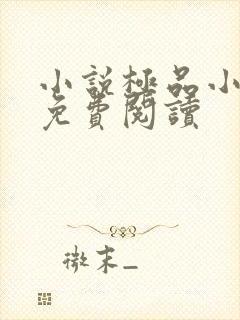 小說極品小
免費閱讀
微末_